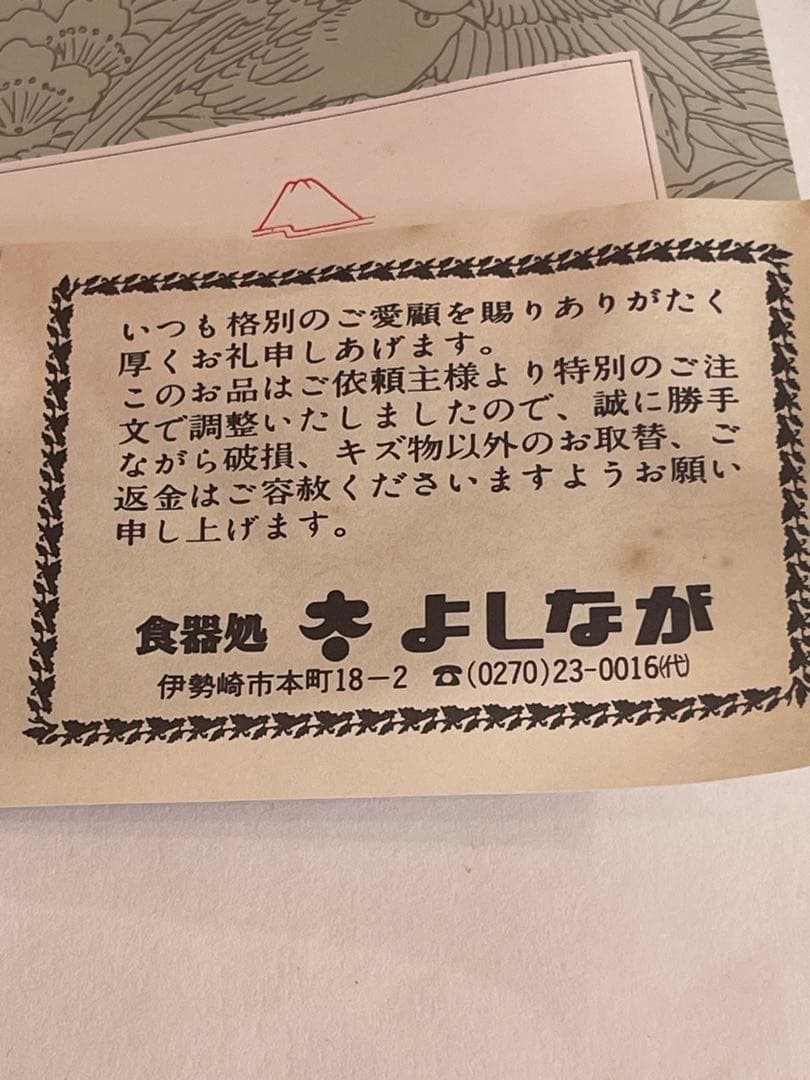 いつも格別のご愛顧を賜りありがたく
厚くお礼申しあげます。
このお品はご依頼主様より特別のご注
文で調整いたしましたので、誠に勝手
ながら破損、キズ物以外のお取替、ご
返金はご容赦くださいますようお願い
申し上げます。
食器処 よしなが
伊勢崎市本町18－2 ☎(0270)23-0016㈹